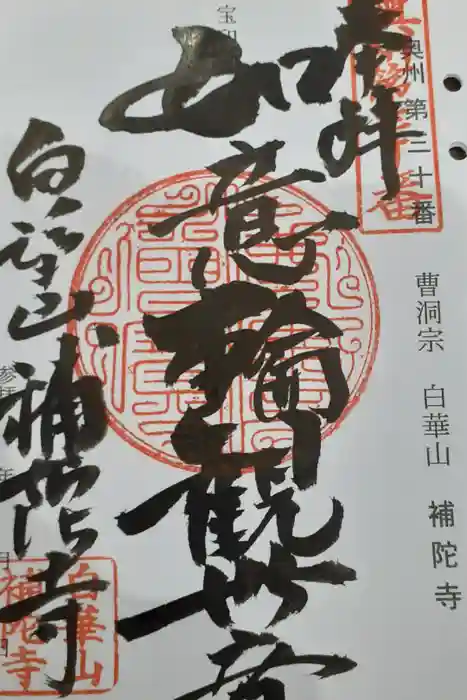 奥州第三十番
曹洞宗 白華山 補陀寺
奉拝
如意輪観世音
白華山 補陀寺
白華山
補陀寺